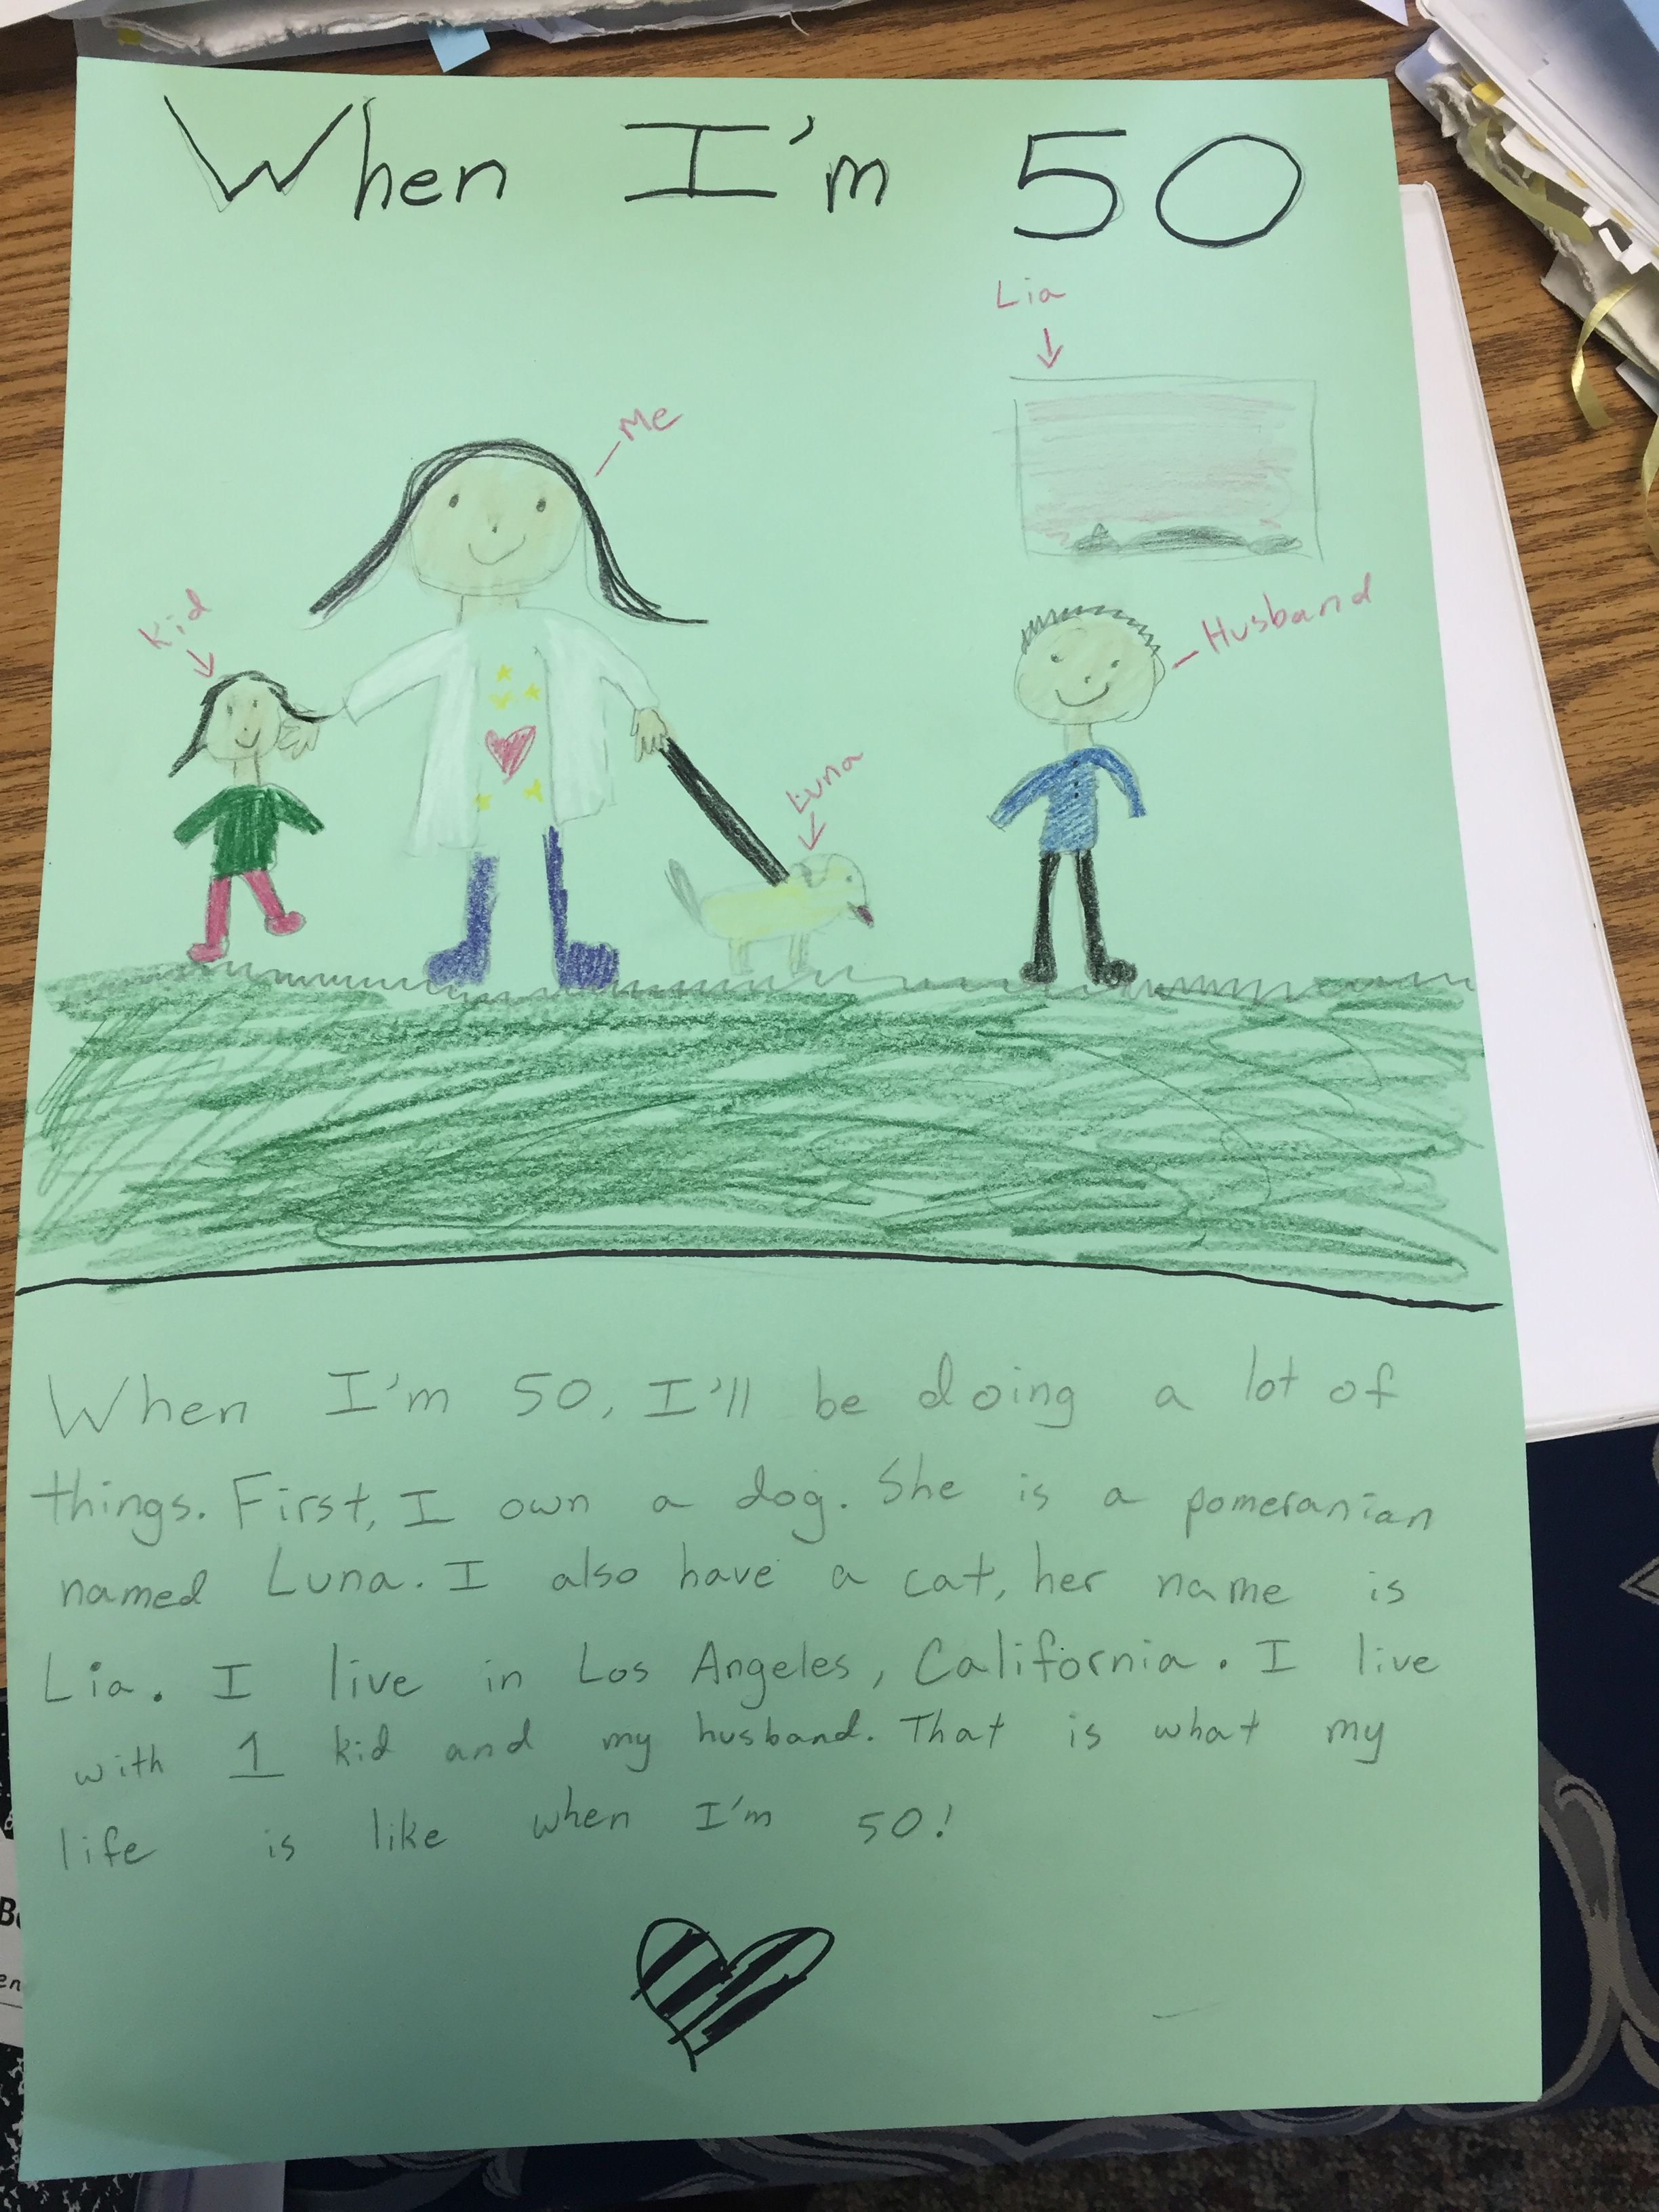 When I'm 50
Lia
Me
Kid
Husband
Luna
When I'm 50, I'll be doing a lot of
things. First, I own a dog. She is a pomeranian
named Luna. I also have a cat, her name is
Lia. I live in Los Angeles, California. I live
with 1 kid and my husband. That is what my
life is like when I'm 50!